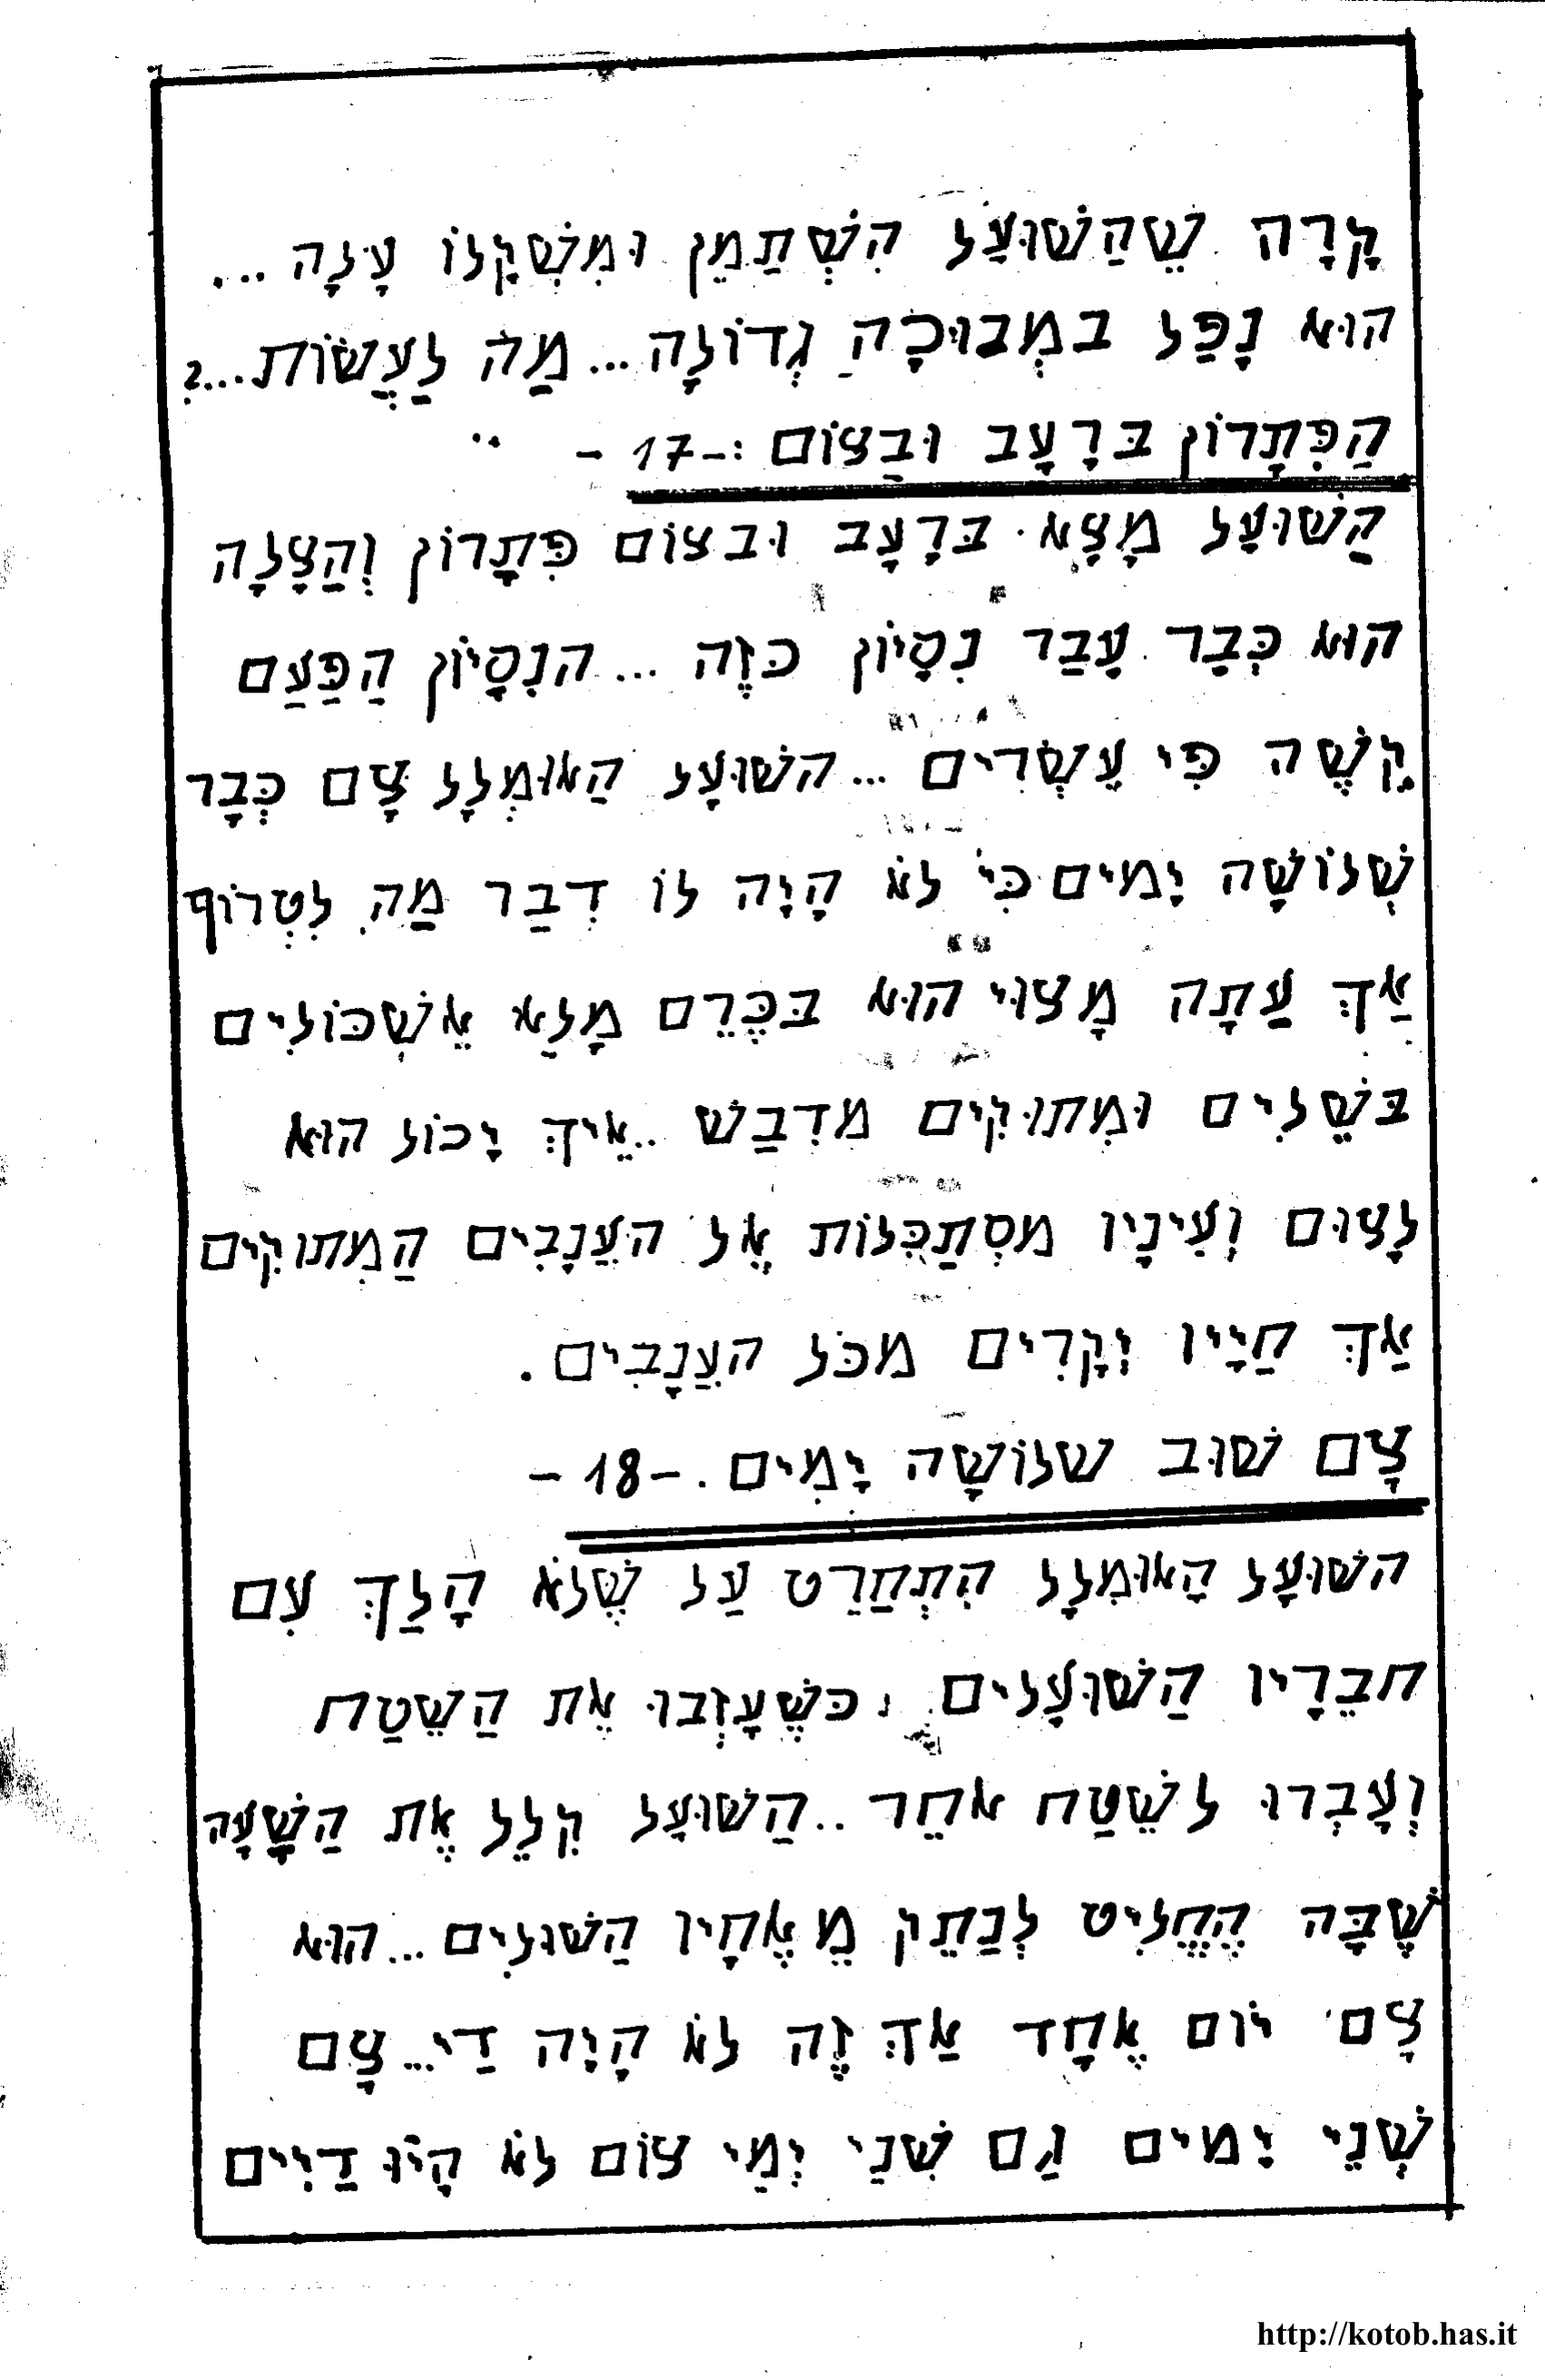 קָרָה שֶׁהַשׁוּעַל הִשְׁתַמֵן וּמִשְׁקָלוֹ עָלָה ...
הוּא נָפַל במְבוּכָה גְדוֹלָה... מַה לַעֲשׂוֹת...?
הַפִּתָרוֹן בּרָעָב וּבַצוֹם :-17-
הַשׁוּעָל מָצָא בּרָעָב וּבצוֹם פִּתָרוֹן וְהַצָלָה
הוּא כְּבָר עָבַר נִסָיוֹן כּזֶה ... הנִסָיוֹן הַפַּעַם
קָשֶׁה פִּי עֶשְׂרִים ... השׁוּעָל הַאוּמְלָל צָם כְּבָר
שְׁלוֹשָׁה יָמים כִּי לֹא הָיָה לוֹ דְבַר מַה לִטְרוֹף
אַךְ עַתָה מָצוּי הוּא בּכֶּרֵם מָלֵא אֵשְׁכּוֹלִים
בּשֵׁלִים וּמִתוּקִים מדִבַשׁ ..אֵיךְ יָכוֹל הוּא
לָצוּם וְעִינָיו מסְתַכְּלוֹת אֶל העֲנָבִים הַמִתוּקִים
אַךְ חַיָיו יְקָרִים מכֹּל העֲנָבִים .
צָם שׁוּב שלוֹשָׁה יָמִים .-18-
השׁוּעָל הָאוּמְלָל הִתְחַרֵט עַל שֶׁלֹא הָלַךְ עִם
חבֵרָיו הַשׁוּעָלים , כּשֶׁעָזְבוּ אֶת הַשֵׁטַח
וְעָבְרוּ לשֵׁטַח אחֵר ..הַשׁוּעָל קִלֵל אֶת הַשָׁעָה
שֶׁבָּה הֶחֱלִיט לְנַתֵק מֵאֶחָיו הַשׁוּלִים ...הוּא
צָם יוֹם אֶחָד אַךְ זֶה לֹא הָיָה דַי... צָם
שְׁנֵי יָמים גַם שְׁנַי יְמַי צוֹם לֹא הָיוּ דַיִים
http://kotob.has.it